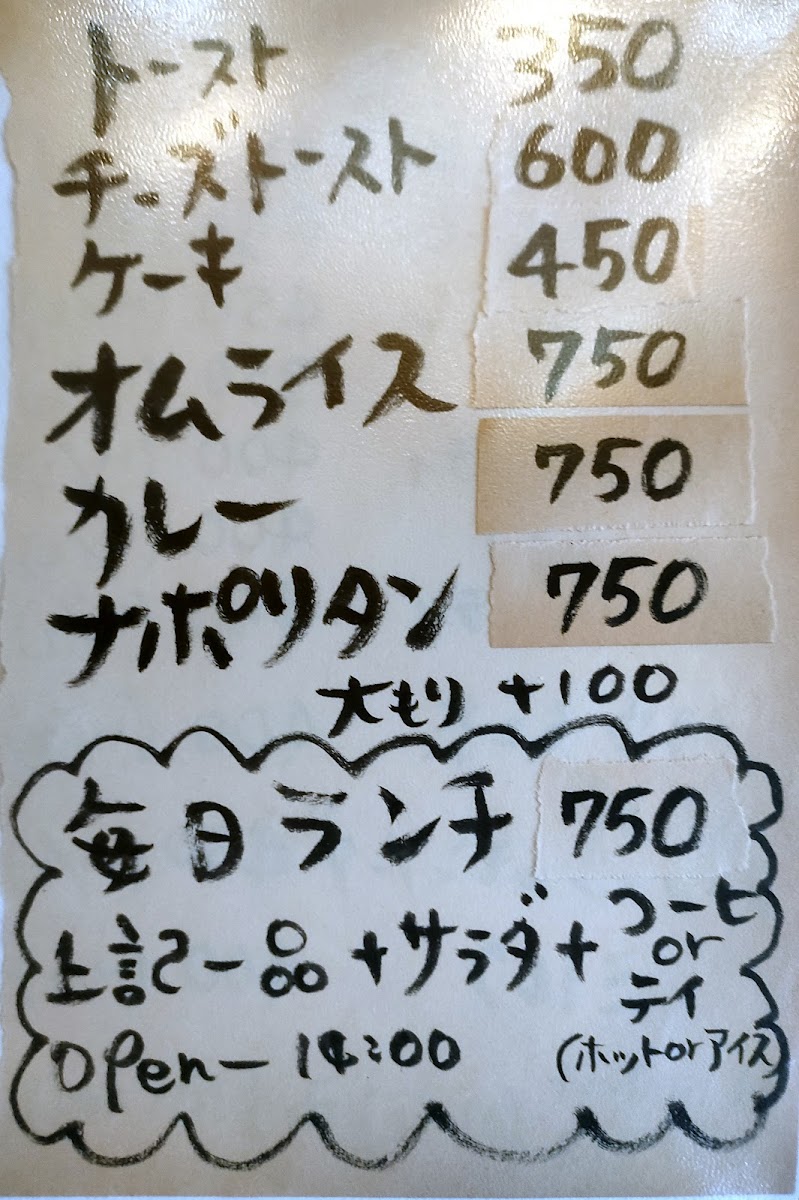 トースト 350
チーズトースト 600
ケーキ 450
オムライス 750
カレー 750
ナポリタン 750
大もり +100
毎日ランチ 750
上記一品+サラダ+コーヒ
or
ティ
(ホットorアイス)
open-14:00